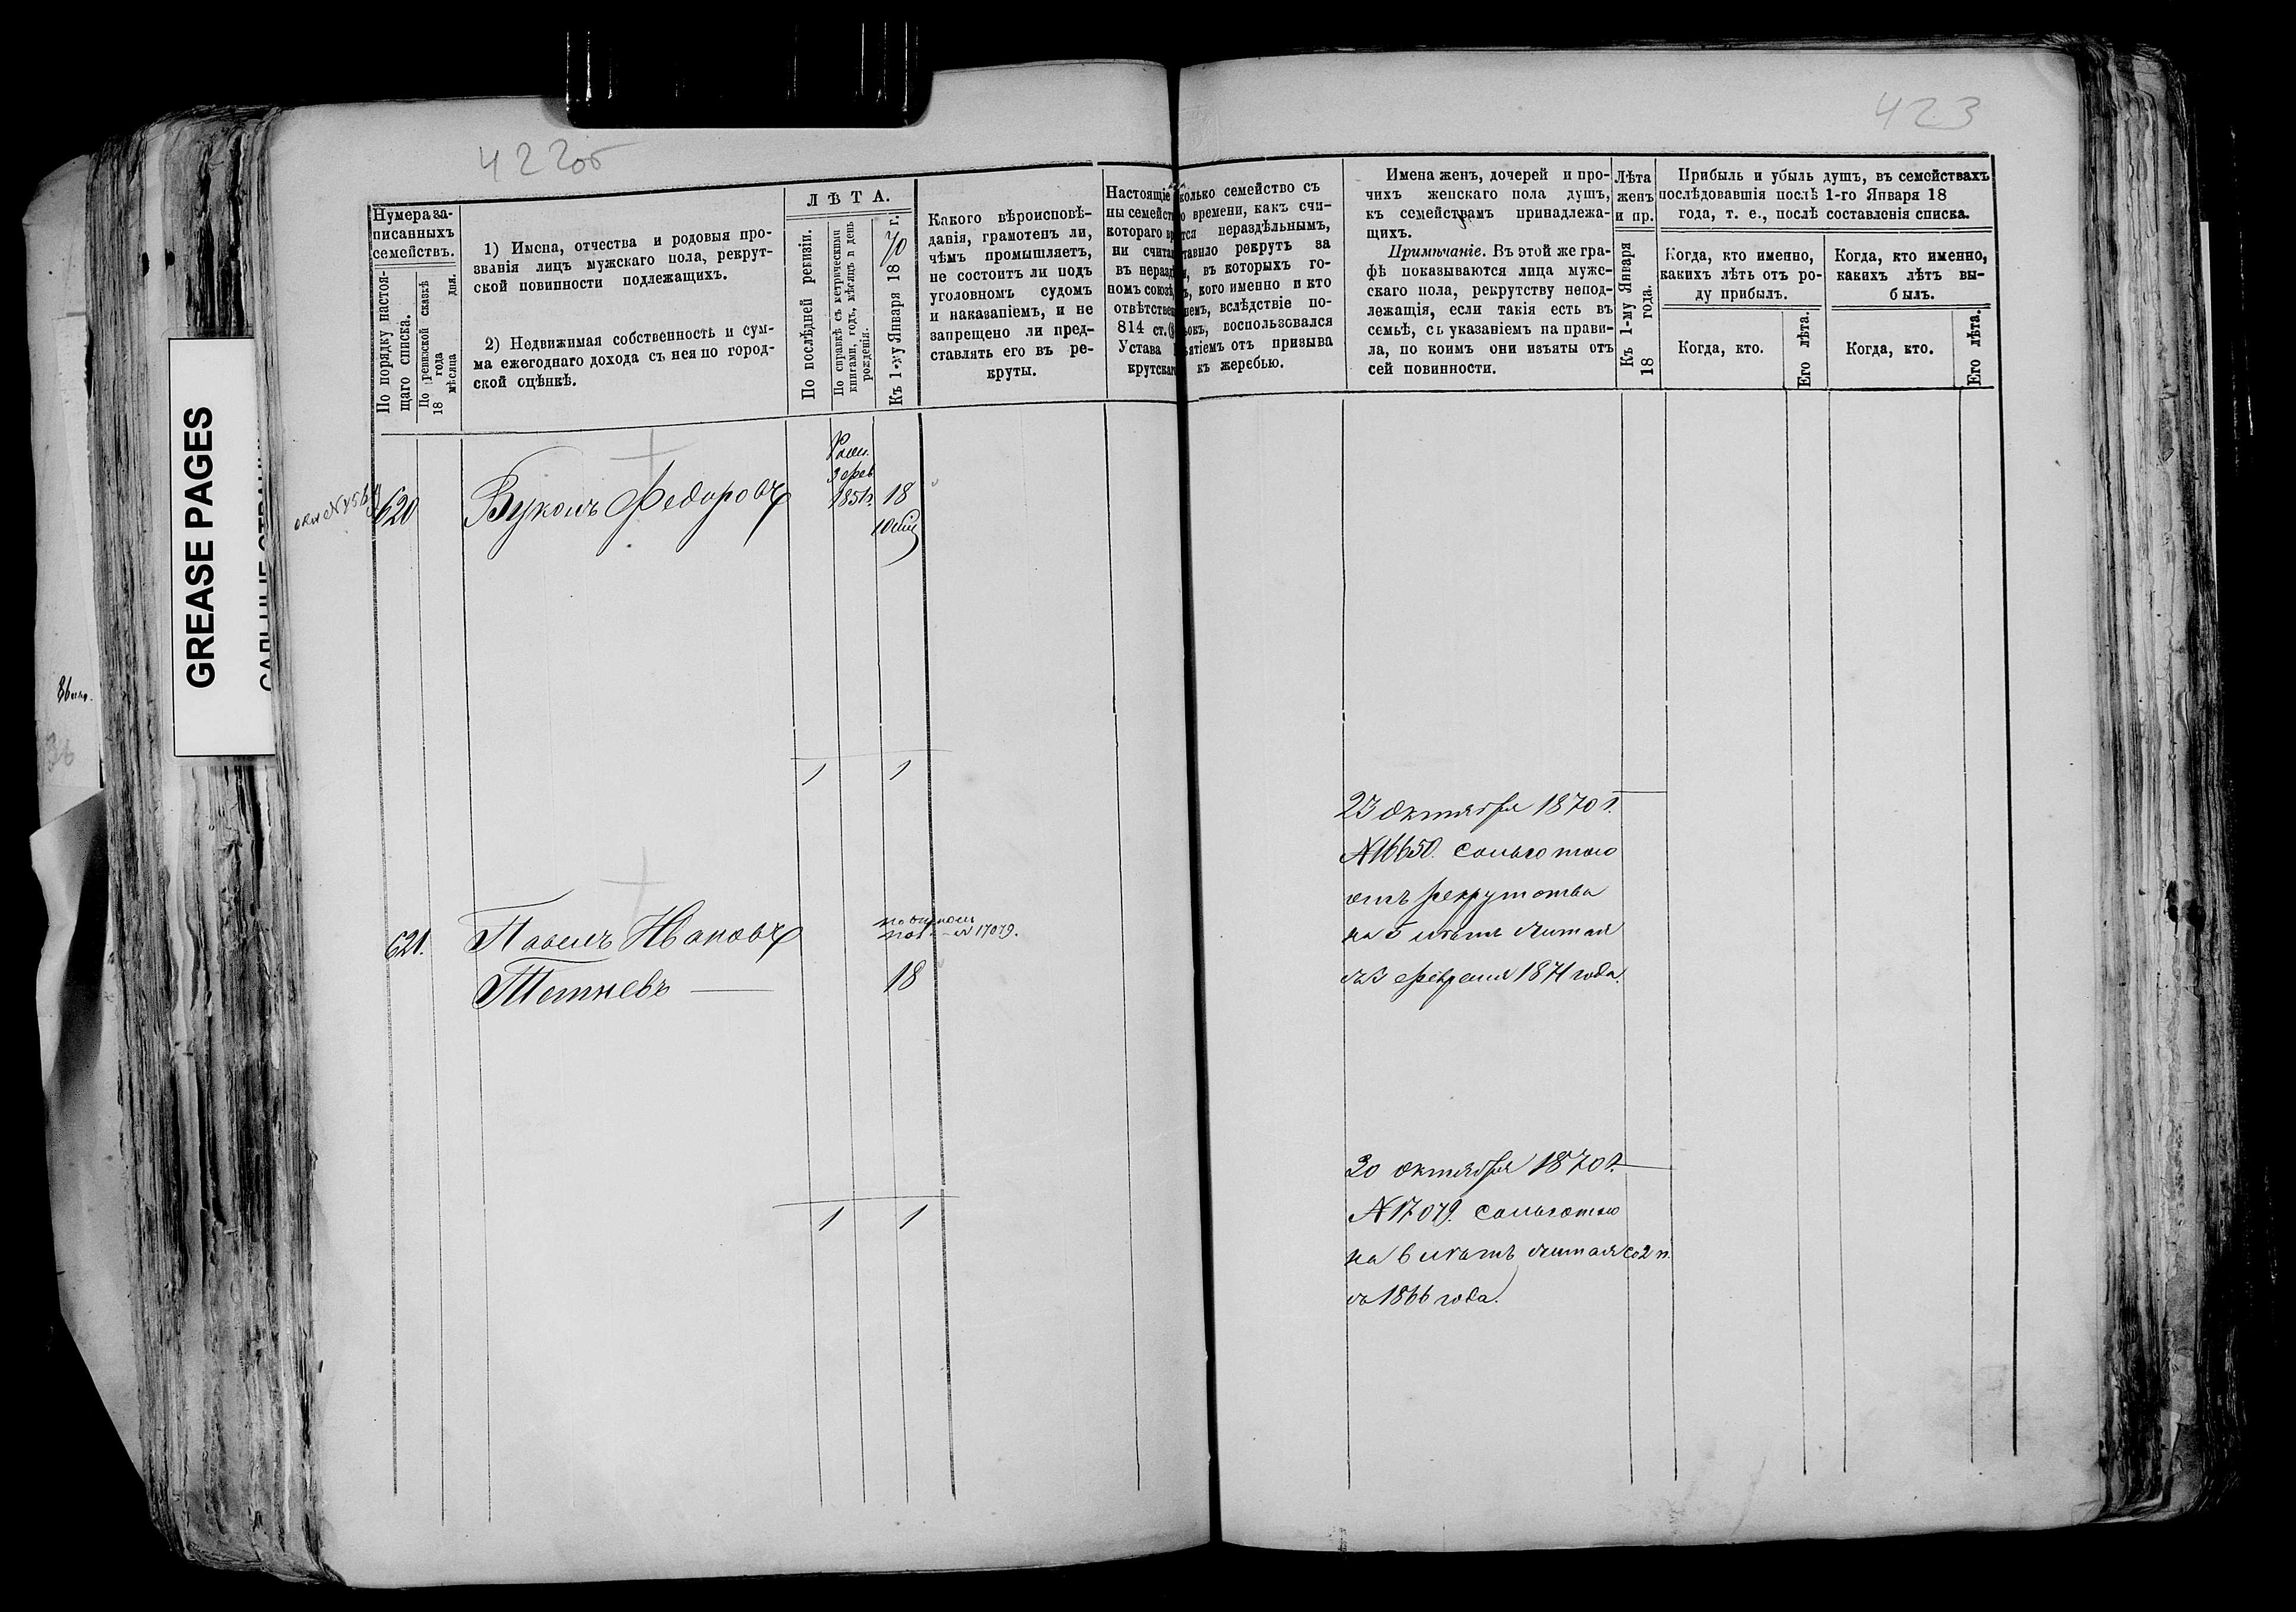 422об
423
GREASE PAGES
Нумера за-
писанныхъ
семействъ.
По порядку настоя-
щаго списка.
По ревизской сказкѣ
18 года
мѣсяца дня.
1) Имена, отчества и родовыя про-
званія лицъ мужскаго пола, рекрут-
ской повинности подлежащихъ.
2) Недвижимая собственность и сум-
ма ежегоднаго дохода съ нея по город-
ской оцѣнкѣ.
ЛѢТА.
По послѣдней ревизіи.
По справкѣ съ метрическими
книгами, годъ, мѣсяцъ и день
рожденія.
Къ 1-му Января 1870 г.
Какого вѣроисповѣ-
данія, грамотенъ ли,
чѣмъ промышляетъ,
не состоитъ ли подъ
уголовномъ судомъ
и наказаніемъ, и не
запрещено ли пред-
ставлять его въ ре-
круты.
Настоящіе
ны семейст
котораго вр
ни счита
въ нераз
номъ союзѣ,
отвѣтстве
814 ст.
Устава
крутскаг
колько семейство съ
о времени, какъ счи-
тся нераздѣльнымъ,
тавило рекрутъ за
, въ которыхъ го-
ъ, кого именно и кто
емъ, вслѣдствіе по-
ъокъ, воспользовался
ятіемъ отъ призыва
къ жеребью.
Имена женъ, дочерей и про-
чихъ женскаго пола душъ,
къ семействамъ принадлежа-
щихъ.
Примѣчаніе. Въ этой же гра-
фѣ показываются лица муже-
скаго пола, рекрутству непод-
лежащія, если такія есть въ
семьѣ, съ указаніемъ на прави-
ла, по коимъ они изъяты отъ
сей повинности.
Лѣта
женъ
и пр.
Къ 1-му Января
18 года.
Прибыль и убыль душъ, въ семействахъ
послѣдовавшія послѣ 1-го Января 18
года, т. е., послѣ составленія списка.
Когда, кто именно,
какихъ лѣтъ отъ ро-
ду прибылъ.
Когда, кто именно,
какихъ лѣтъ вы-
былъ.
Когда, кто.
Его лѣта.
Когда, кто.
Его лѣта.
620
Вуколъ Федоровъ
3 фев
1851г.
18
1
1
23 октября 1870 г.
№16650. Сольготою
отъ рекрутства
на 5 лѣтъ считая
съ 3 февраля 1871 года.
621.
Павелъ Ивановъ
№17079.
Тетневъ
18
30 октября 1870 г.
№17079. Сольготою
на 6 лѣтъ считая со 2 п.
съ 1866 года.
1
1